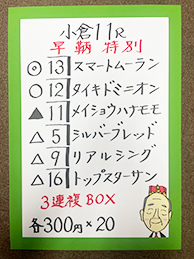 小倉11R
早鞆特別
◎ 13 スマートムーラン
○ 12 タイキドミニオン
▲ 11 メイショウハナモモ
△ 5 シルバーブレッド
△ 9 リアルシング
△ 16 トップスターサン
3連複BOX
各300円×20